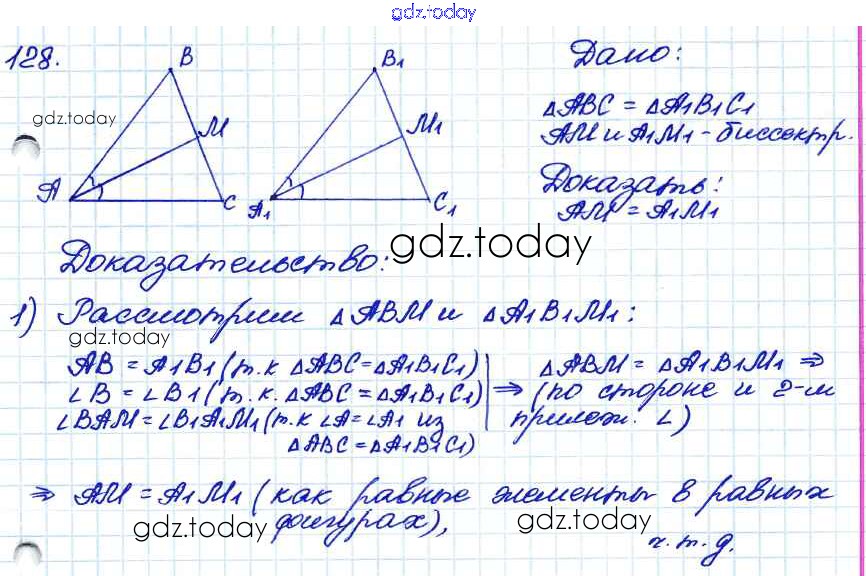 gdz.today
128.
B
B₁
gdz.today
M
M₁
A
C
A₁
C₁
Дано:
△ABC = △A₁B₁C₁
AM и A₁M₁ - биссектр.
Доказать:
AM = A₁M₁
Доказательство:
gdz.today
1) Рассмотрим △ABM и △A₁B₁M₁:
gdz.today
AB = A₁B₁ (т.к △ABC = △A₁B₁C₁)
∠B = ∠B₁ (т.к. △ABC = △A₁B₁C₁)
∠BAM = ∠B₁A₁M₁ (т.к ∠A = ∠A₁ из
△ABC = △A₁B₁C₁)
△ABM = △A₁B₁M₁ ⇒
⇒ (по стороне и 2-м
прилеж. ∠)
⇒ AM = A₁M₁ (как равные элементы в равных
gdz.today
фигурах),
gdz.today
ч.т.д.